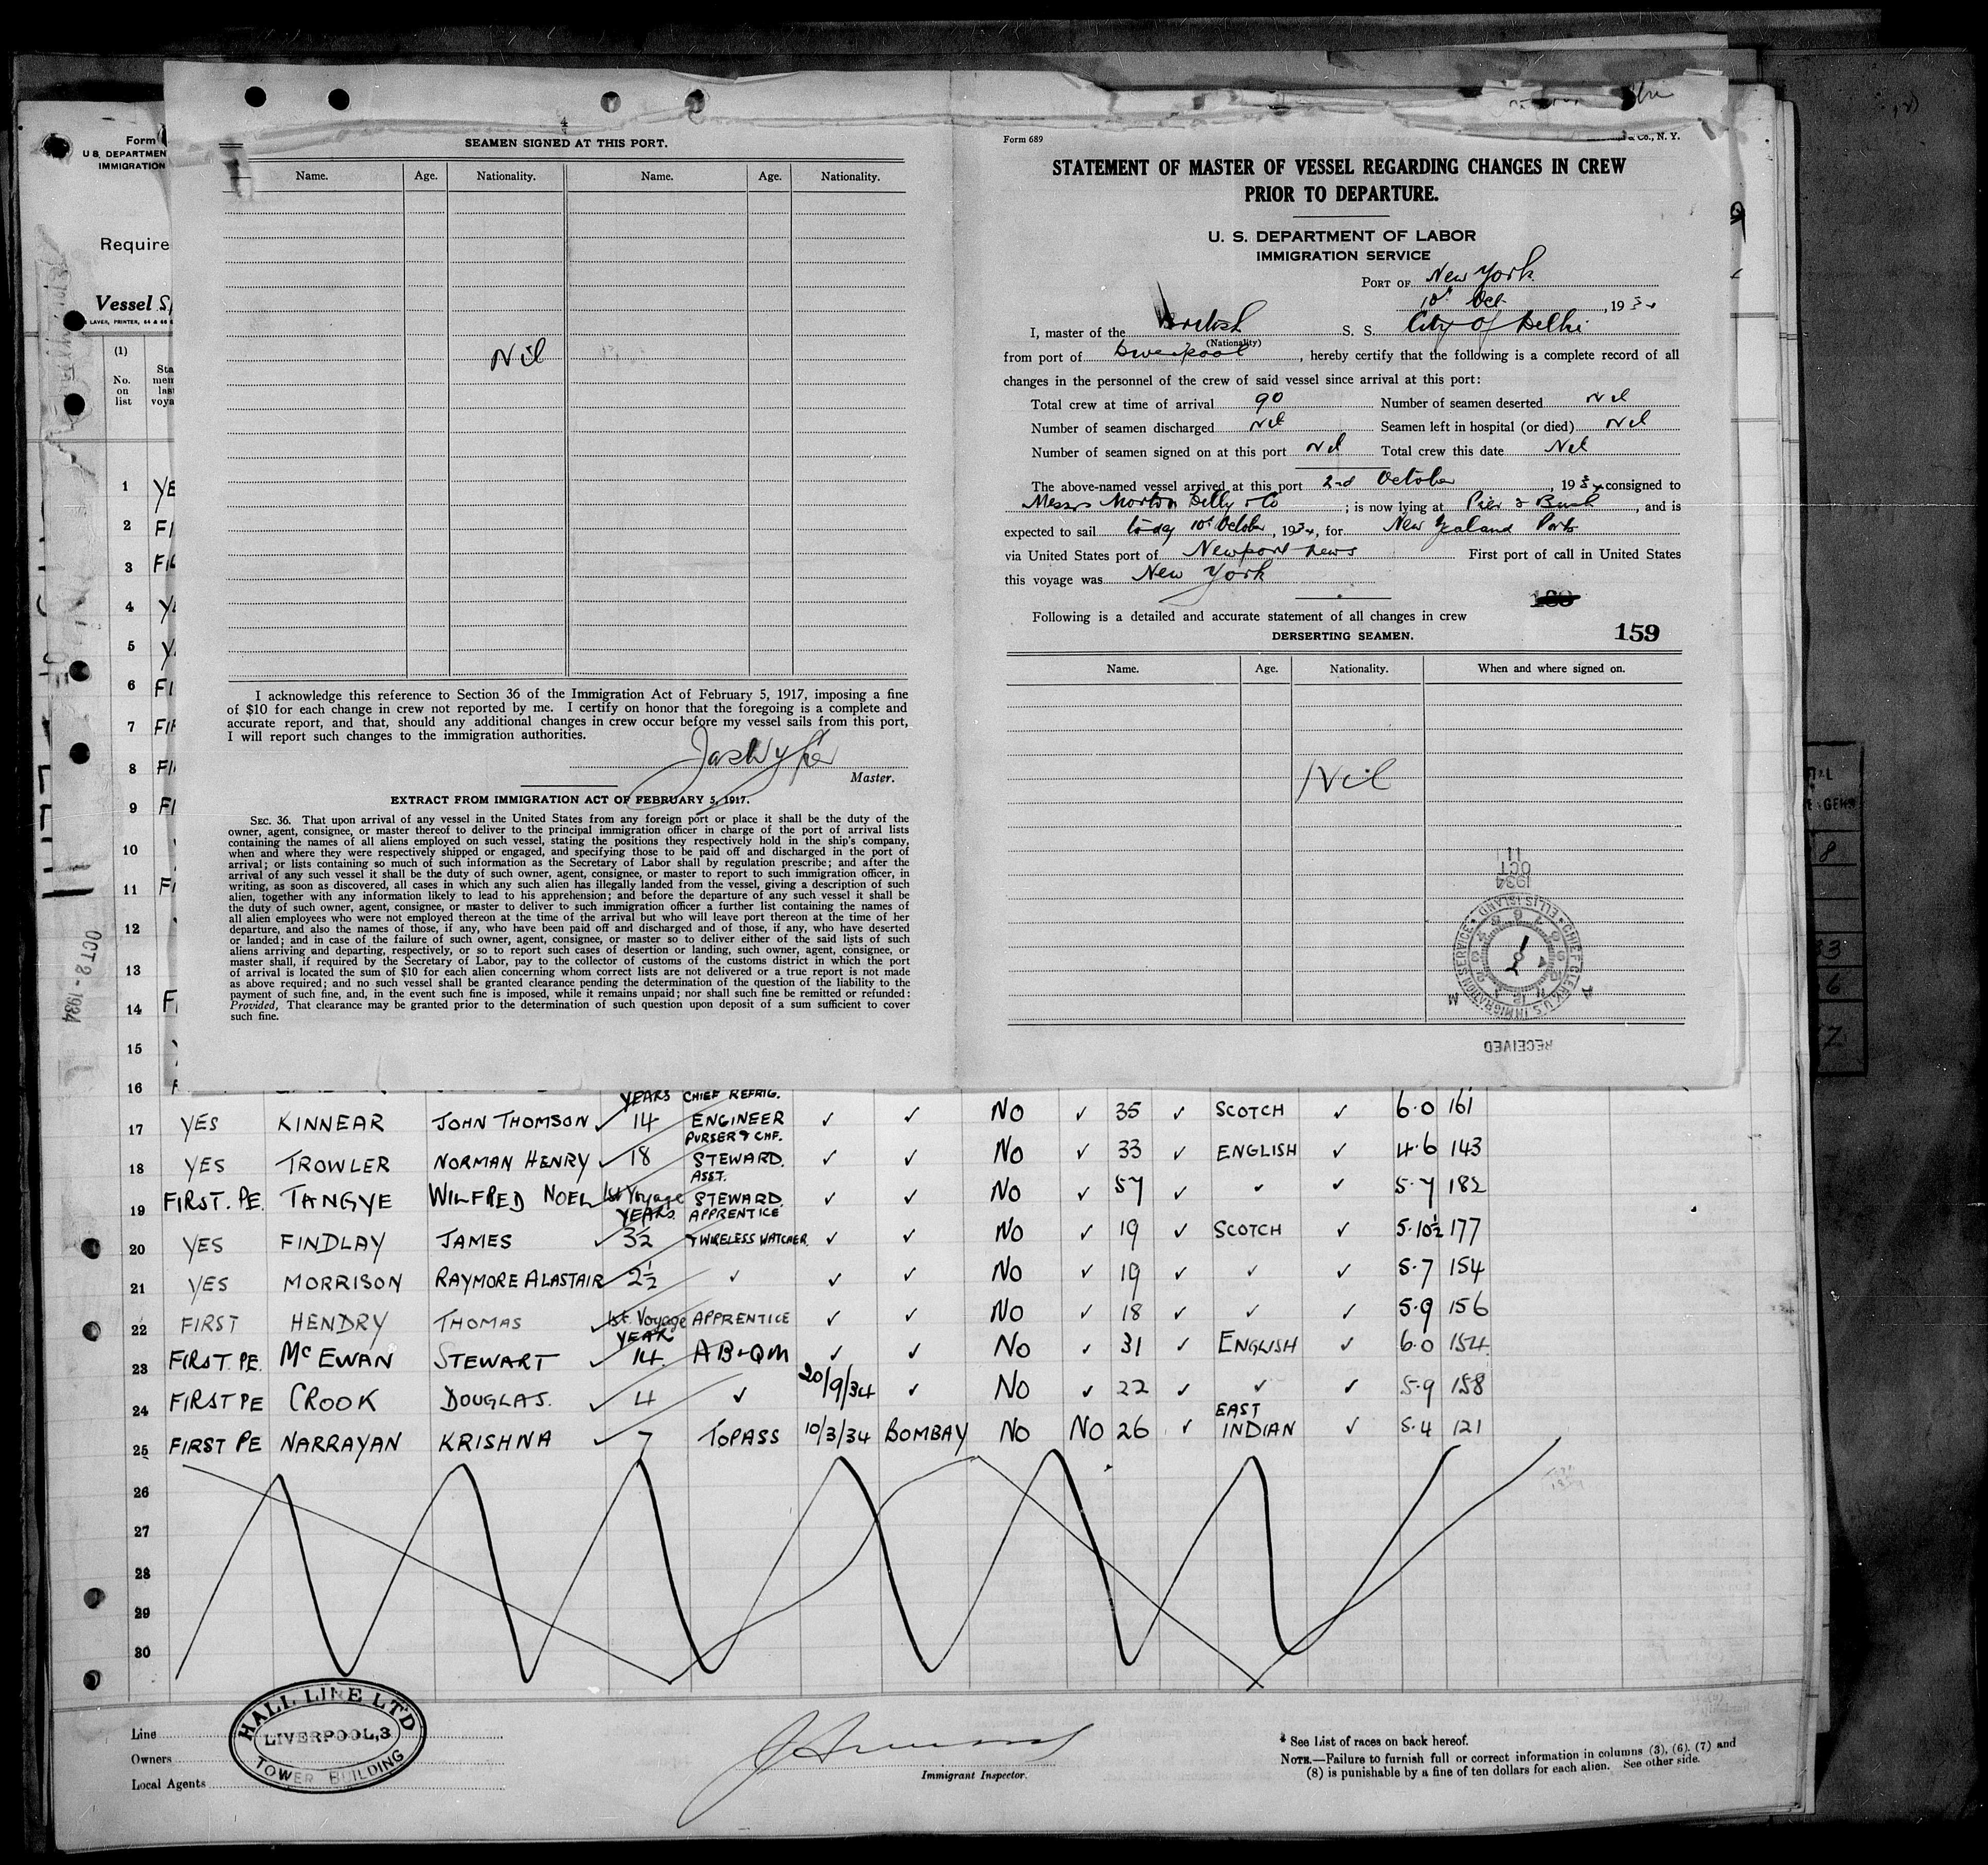 Form
U S. DEPARTMEN
IMMIGRATION
Require
Vessel
LAVER, PRINTER, 64 & 66
(1)
No.
on
list
Sta
men
las
voya
4
SEAMEN SIGNED AT THIS PORT.
Name. Age. Nationality. Name. Age. Nationality.
Nil
I acknowledge this reference to Section 36 of the Immigration Act of February 5, 1917, imposing a fine
of $10 for each change in crew not reported by me. I certify on honor that the foregoing is a complete and
accurate report, and that, should any additional changes in crew occur before my vessel sails from this port,
I will report such changes to the immigration authorities.
Master.
EXTRACT FROM IMMIGRATION ACT OF FEBRUARY 5, 1917.
SEC. 36. That upon arrival of any vessel in the United States from any foreign port or place it shall be the duty of the
owner, agent, consignee, or master thereof to deliver to the principal immigration officer in charge of the port of arrival lists
containing the names of all aliens employed on such vessel, stating the positions they respectively hold in the ship's company,
when and where they were respectively shipped or engaged, and specifying those to be paid off and discharged in the port of
arrival; or lists containing so much of such information as the Secretary of Labor shall by regulation prescribe; and after the
arrival of any such vessel it shall be the duty of such owner, agent, consignee, or master to report to such immigration officer, in
writing, as soon as discovered, all cases in which any such alien has illegally landed from the vessel, giving a description of such
alien, together with any information likely to lead to his apprehension; and before the departure of any such vessel it shall be
the duty of such owner, agent, consignee, or master to deliver to such immigration officer a further list containing the names of
all alien employees who were not employed thereon at the time of the arrival but who will leave port thereon at the time of her
departure, and also the names of those, if any, who have been paid off and discharged and of those, if any, who have deserted
or landed; and in case of the failure of such owner, agent, consignee, or master so to deliver either of the said lists of such
aliens arriving and departing, respectively, or so to report such cases of desertion or landing, such owner, agent, consignee, or
master shall, if required by the Secretary of Labor, pay to the collector of customs of the customs district in which the port
of arrival is located the sum of $10 for each alien concerning whom correct lists are not delivered or a true report is not made
as above required; and no such vessel shall be granted clearance pending the determination of the question of the liability to the
payment of such fine, and, in the event such fine is imposed, while it remains unpaid; nor shall such fine be remitted or refunded:
Provided, That clearance may be granted prior to the determination of such question upon deposit of a sum sufficient to cover
such fine.
Form 689
& Co., N. Y.
STATEMENT OF MASTER OF VESSEL REGARDING CHANGES IN CREW
PRIOR TO DEPARTURE.
U. S. DEPARTMENT OF LABOR
IMMIGRATION SERVICE
PORT OF New York
10th Oct , 1934
I, master of the British S. S. City of Delhi
(Nationality)
from port of Liverpool , hereby certify that the following is a complete record of all
changes in the personnel of the crew of said vessel since arrival at this port:
Total crew at time of arrival 90 Number of seamen deserted Nil
Number of seamen discharged Nil Seamen left in hospital (or died) Nil
Number of seamen signed on at this port Nil Total crew this date Nil
The above-named vessel arrived at this port 2nd October , 1934 consigned to
Messrs Norton Lilly & Co ; is now lying at Pier 2 Bush , and is
expected to sail today 10th October, 1934, for New Zealand Ports
via United States port of Newport News First port of call in United States
this voyage was New York
Following is a detailed and accurate statement of all changes in crew
159
DERSERTING SEAMEN.
Name. Age. Nationality. When and where signed on.
Nil
11
OCT
1934
CHIEF CLERK U.S. IMMIGRATION SERVICE • ELLIS ISLAND
A M
RECEIVED
OCT 2 - 1934
1 YE
2 FI
3
4 Y
5 Y
6 FI
7 FIR
8 FI
9 FI
10
11 F
12
13
14 F
15
16
17 YES KINNEAR JOHN THOMSON ✓ YEARS 14 CHIEF REFRIG. ENGINEER ✓ ✓ NO ✓ 35 ✓ SCOTCH ✓ 6.0 161
18 YES TROWLER NORMAN HENRY ✓ 18 PURSER & CHF. STEWARD. ✓ ✓ NO ✓ 33 ✓ ENGLISH ✓ 4.6 143
19 FIRST. PE. TANGYE WILFRED NOEL 1st Voyage ASST. STEWARD. ✓ ✓ NO ✓ 57 ✓ ✓ ✓ 5.7 182
20 YES FINDLAY JAMES ✓ YEARS 3½ APPRENTICE & WIRELESS WATCHER. ✓ ✓ NO ✓ 19 ✓ SCOTCH ✓ 5.10½ 177
21 YES MORRISON RAYMORE ALASTAIR 2½ ✓ ✓ ✓ NO ✓ 19 ✓ ✓ ✓ 5.7 154
22 FIRST HENDRY THOMAS ✓ 1st Voyage APPRENTICE ✓ ✓ NO ✓ 18 ✓ ✓ ✓ 5.9 156
23 FIRST. PE. McEWAN STEWART ✓ YEARS 14. AB & QM ✓ ✓ NO ✓ 31 ✓ ENGLISH ✓ 6.0 154
24 FIRST PE CROOK DOUGLAS. ✓ 4 ✓ 20/9/34 ✓ NO ✓ 22 ✓ ✓ ✓ 5.9 158
25 FIRST PE NARRAYAN KRISHNA ✓ 7 TOPASS 10/3/34 BOMBAY NO NO 26 ✓ EAST INDIAN ✓ 5.4 121
26
27
28
29
30
Line
Owners
Local Agents
HALL LINE LTD
LIVERPOOL, 3
TOWER BUILDING
Immigrant Inspector.
* See List of races on back hereof.
NOTE.—Failure to furnish full or correct information in columns (3), (6), (7) and
(8) is punishable by a fine of ten dollars for each alien. See other side.